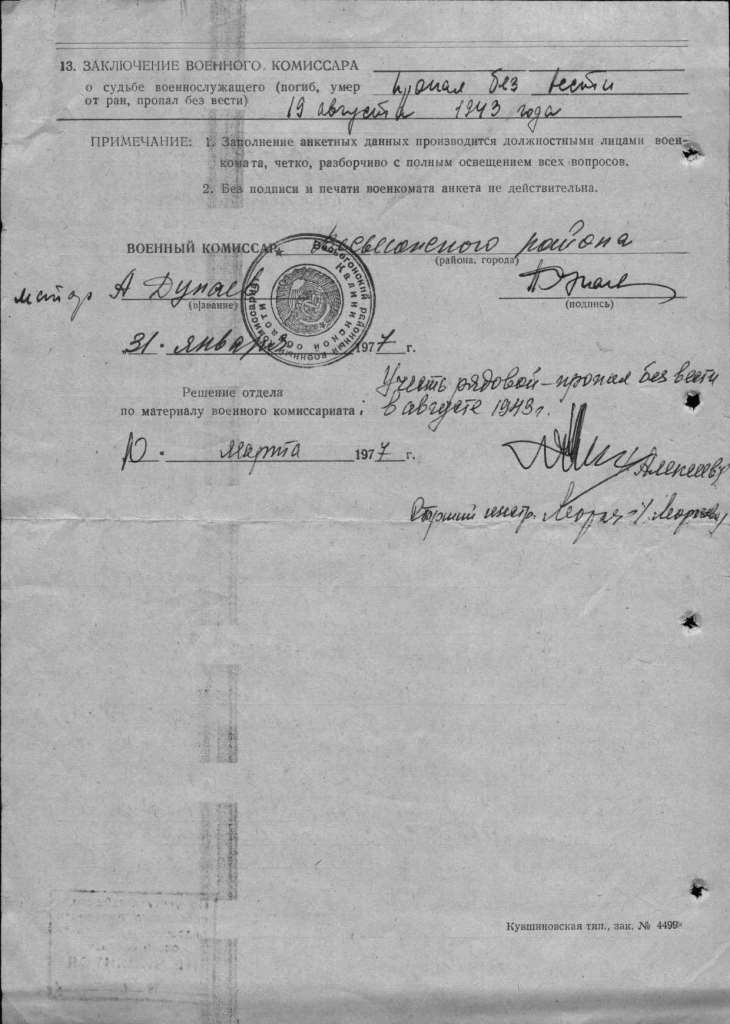 13. ЗАКЛЮЧЕНИЕ ВОЕННОГО КОМИССАРА
о судьбе военнослужащего (погиб, умер пропал без вести
от ран, пропал без вести) 19 августа 1943 года
ПРИМЕЧАНИЕ: 1. Заполнение анкетных данных производится должностными лицами воен-
комата, четко, разборчиво с полным освещением всех вопросов.
2. Без подписи и печати военкомата анкета не действительна.
ВОЕННЫЙ КОМИССАР Весьегонского района
(района, города)
майор А Дунаев
(звание) (подпись)
Весьегонский районный военный комиссариат
Калининской области
31. января 1977 г.
Решение отдела Учесть рядовой - пропал без вести
по материалу военного комиссариата: в августе 1943 г.
10. марта 1977 г.
Алексеев
Старший инстр.
Кувшиновская тип., зак. № 4499